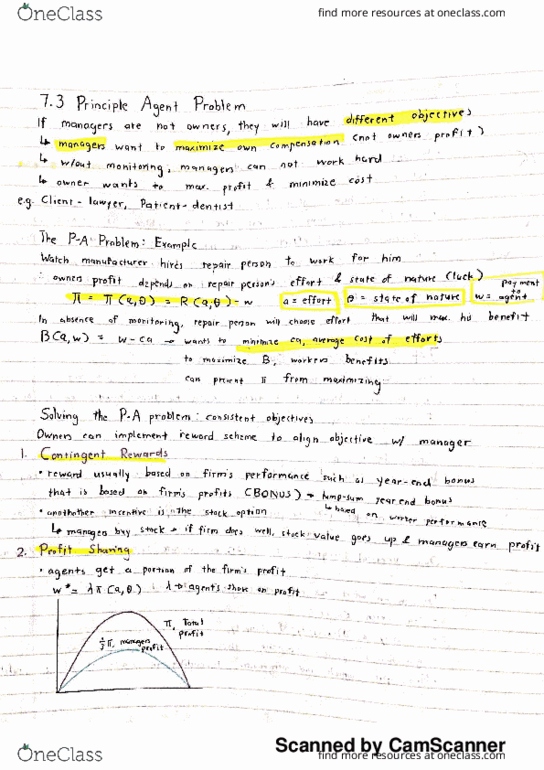 OneClass
find more resources at oneclass.com
7.3 Principle Agent Problem
If managers are not owners, they will have different objectives
↳ managers want to maximize own compensation (not owners profit)
↳ w/out monitoring, managers can not work hard
↳ owner wants to max. profit & minimize cost
e.g. Client - lawyer, Patient - dentist
The P-A Problem: Example
Watch manufacturer hires repair person to work for him
∴ owners profit depends on repair person's effort & state of nature (luck)
π = π(a,θ) = R(a,θ) - w
a = effort
θ = state of nature
w = payment to agent
In absence of monitoring, repair person will choose effort that will max. his benefit
B(a,w) = w - ca → wants to minimize ca, average cost of efforts
to maximize B, workers benefits
can prevent π from maximizing
Solving the P-A problem: consistent objectives
Owners can implement reward scheme to align objective w/ manager
1. Contingent Rewards
• reward usually based on firm's performance such as year-end bonus
that is based on firm's profits (BONUS) → lump-sum year end bonus
↳ based on worker performance
• anothather incentive is the stock option
↳ manager buy stock → if firm does well, stock value goes up & managers earn profit
2. Profit Sharing
• agents get a portion of the firm's profit
w* = λπ(a,θ) : λ → agent's share on profit
π, Total profit
π, managers profit
Scanned by CamScanner
OneClass
find more resources at oneclass.com